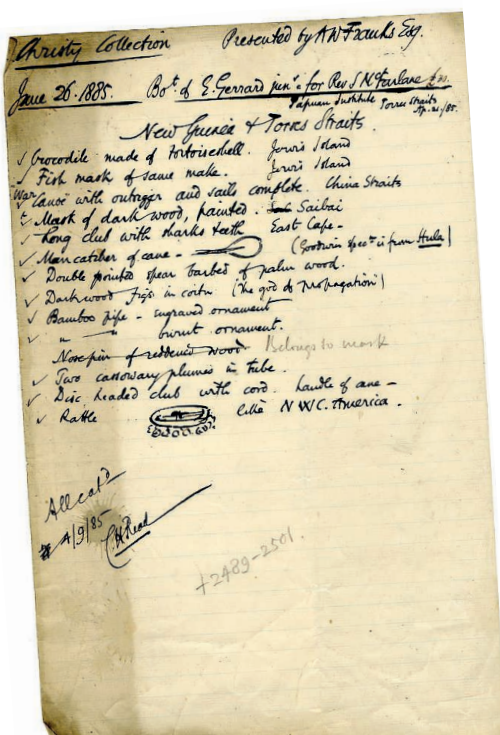 Christy Collection Presented by A W Franks Esq.
June 26. 1885. Bot of E. Gerrard junr for Rev S Mc Farlane
Papuan Institute Torres Straits
New Guinea & Torres Straits.
✓ Crocodile made of tortoiseshell. Jervis Island
✓ Fish mask of same make. Jervis Island
War Canoe with outrigger and sails complete. China Straits
Mask of dark wood, painted. Saibai
✓ Long club with sharks teeth East Cape -
✓ Mancatcher of cane - (Goodwin spect is from Hula)
✓ Double pointed spear barbed of palm wood.
✓ Dark wood figs in coitu (the god of propagation)
✓ Bamboo pipe - engraved ornament
✓ " " burnt ornament.
Nose pin of reddened wood Belongs to mask
✓ Two cassowary plumes in tube.
✓ Disc headed club with cord. handle of cane -
✓ Rattle like N W C. America.
All catd
4/9/85
C.H.Read
+2489-2501